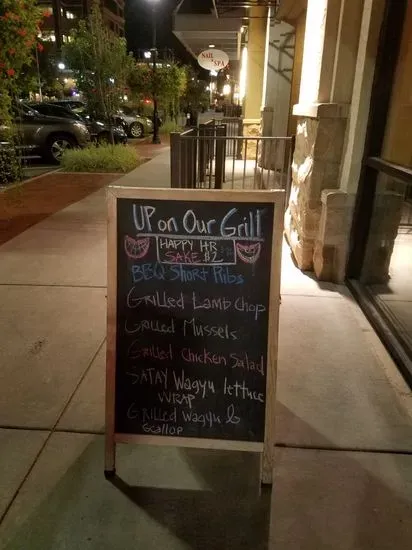 NAIL
SPA
UP on Our Grill
HAPPY HR
SAKE $2
BBQ Short Ribs
Grilled Lamb Chop
Grilled Mussels
Grilled Chicken Salad
SATAY Wagyu lettuce
WRAP
Grilled Wagyu &
Scallop